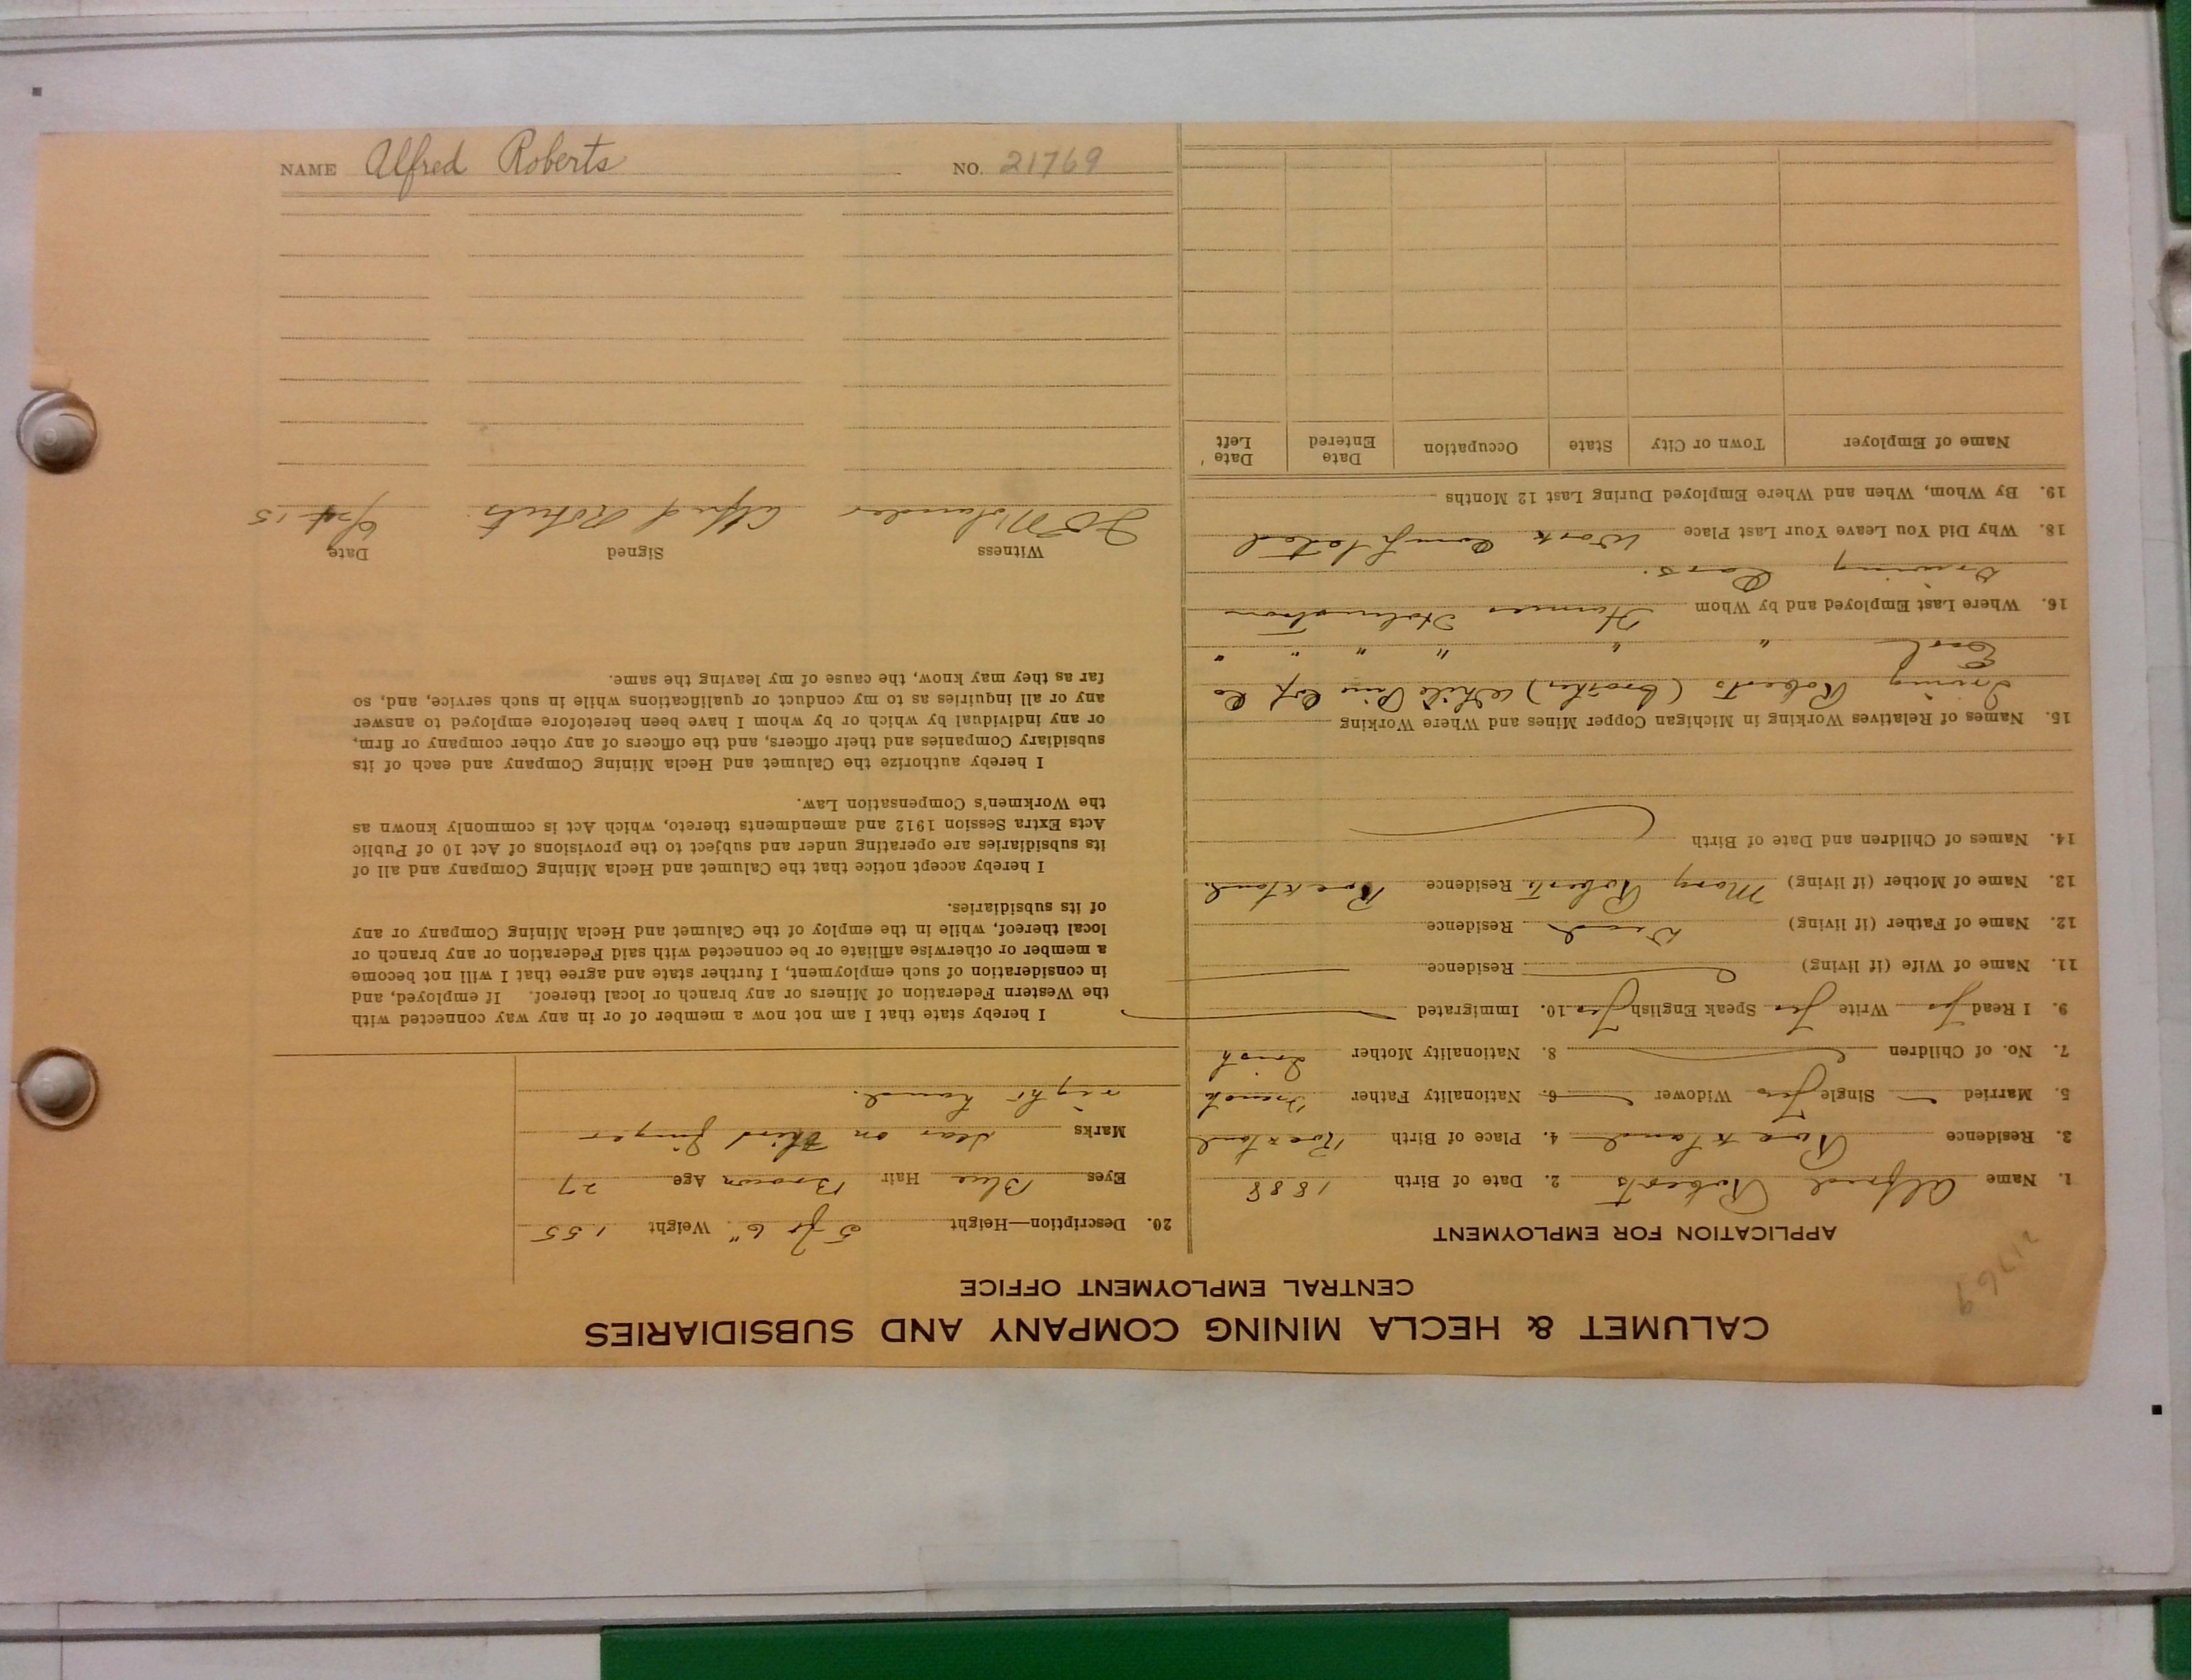 NAME Alfred Roberts NO. 21769
21769
CALUMET & HECLA MINING COMPANY AND SUBSIDIARIES
CENTRAL EMPLOYMENT OFFICE
APPLICATION FOR EMPLOYMENT
1. Name Alfred Roberts 2. Date of Birth 1888
3. Residence Rockland 4. Place of Birth Rockland
5. Married Single Yes Widower 6. Nationality Father French
7. No. of Children 8. Nationality Mother Irish
9. I Read Yes Write Yes Speak English Yes 10. Immigrated
11. Name of Wife (if living) Residence
12. Name of Father (if living) Dead Residence
13. Name of Mother (if living) Mary Roberts Residence Rockland.
14. Names of Children and Date of Birth
15. Names of Relatives Working in Michigan Copper Mines and Where Working
Irving Roberts (brother) White Pine Cop Co
Earl " " " " "
16. Where Last Employed and by Whom Holmstrom
Driving
18. Why Did You Leave Your Last Place Work Completed
19. By Whom, When and Where Employed During Last 12 Months
Name of Employer Town or City State Occupation Date Entered Date Left
20. Description—Height 5 ft 6" Weight 155
Eyes Blue Hair Brown Age 27
Marks scar on third finger
right hand.
I hereby state that I am not now a member of or in any way connected with
the Western Federation of Miners or any branch or local thereof. If employed, and
in consideration of such employment, I further state and agree that I will not become
a member or otherwise affiliate or be connected with said Federation or any branch or
local thereof, while in the employ of the Calumet and Hecla Mining Company or any
of its subsidiaries.
I hereby accept notice that the Calumet and Hecla Mining Company and all of
its subsidiaries are operating under and subject to the provisions of Act 10 of Public
Acts Extra Session 1912 and amendments thereto, which Act is commonly known as
the Workmen's Compensation Law.
I hereby authorize the Calumet and Hecla Mining Company and each of its
subsidiary Companies and their officers, and the officers of any other company or firm,
or any individual by which or by whom I have been heretofore employed to answer
any or all inquiries as to my conduct or qualifications while in such service, and, so
far as they may know, the cause of my leaving the same.
Witness Signed Date
Molander Alfred Roberts